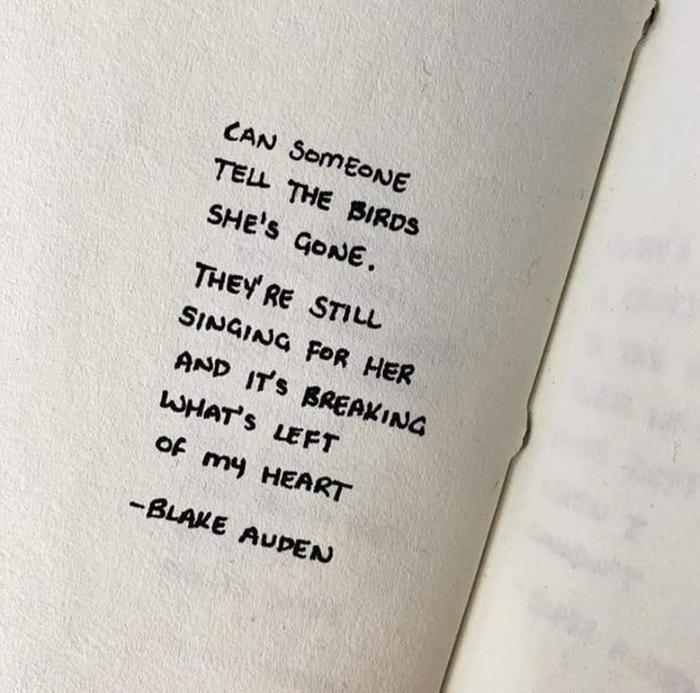 CAN SOMEONE
TELL THE BIRDS
SHE'S GONE.
THEY'RE STILL
SINGING FOR HER
AND IT'S BREAKING
WHAT'S LEFT
OF MY HEART
-BLAKE AUDEN